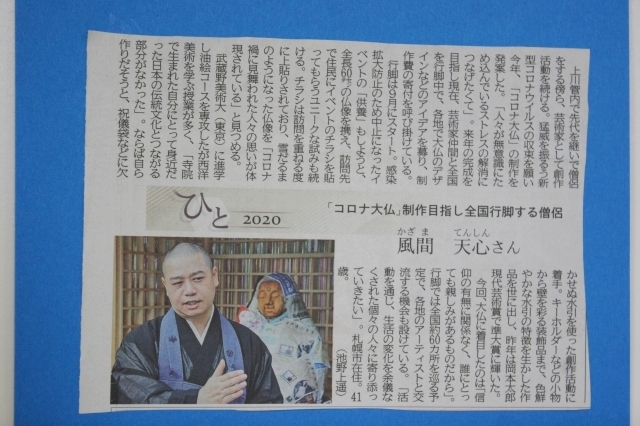 上川管内で先代を継いで僧侶
をする傍ら、芸術家として創作
活動を続ける。猛威を振るう新
型コロナウイルスの収束を願い
今年、「コロナ大仏」の制作を
発案した。「人々が無意識にた
め込んでいるストレスの解消に
つなげたくて」。来年の完成を
目指し現在、芸術家仲間と全国
を行脚中。各地で大仏のデザ
インなどのアイデアを募り、制
作費の寄付を呼び掛けている。
行脚は9月にスタート。感染
拡大防止のため中止になったイ
ベントの「供養」もしようと、
全長60㌢の仏像を携え、訪問先
で住民にイベントのチラシを貼
ってもらうユニークな試みも続
ける。チラシは訪問を重ねる度
に上貼りされており、雪だるま
のようになった仏像を「コロナ
禍に見舞われた人々の思いが体
現されている」と見つめる。
武蔵野美術大（東京）に進学
し油絵コースを専攻したが西洋
美術を学ぶ授業が多く、「寺院
で生まれた自分にとって身近だ
った日本の伝統文化とつながる
部分がなかった」。ならば自ら
作りだそうと、祝儀袋などに欠
ひと 2020
「コロナ大仏」制作目指し全国行脚する僧侶
かざま てんしん
風間 天心さん
かせぬ水引を使った創作活動に
着手。キーホルダーなどの小物
から壁を彩る装飾品まで、色鮮
やかな水引の特徴を生かした作
品を世に出し、昨年は岡本太郎
現代芸術賞で準大賞に輝いた。
今回、大仏に着目したのは「信
仰の有無に関係なく、誰にとっ
ても親しみがあるものだから」。
行脚では全国約60カ所を巡る予
定で、各地のアーティストと交
流する機会も設けている。「活
動を通じ、生活の変化を余儀な
くされた個々の人々に寄り添っ
ていきたい」。札幌市在住。41
歳。　　（池野上遥）